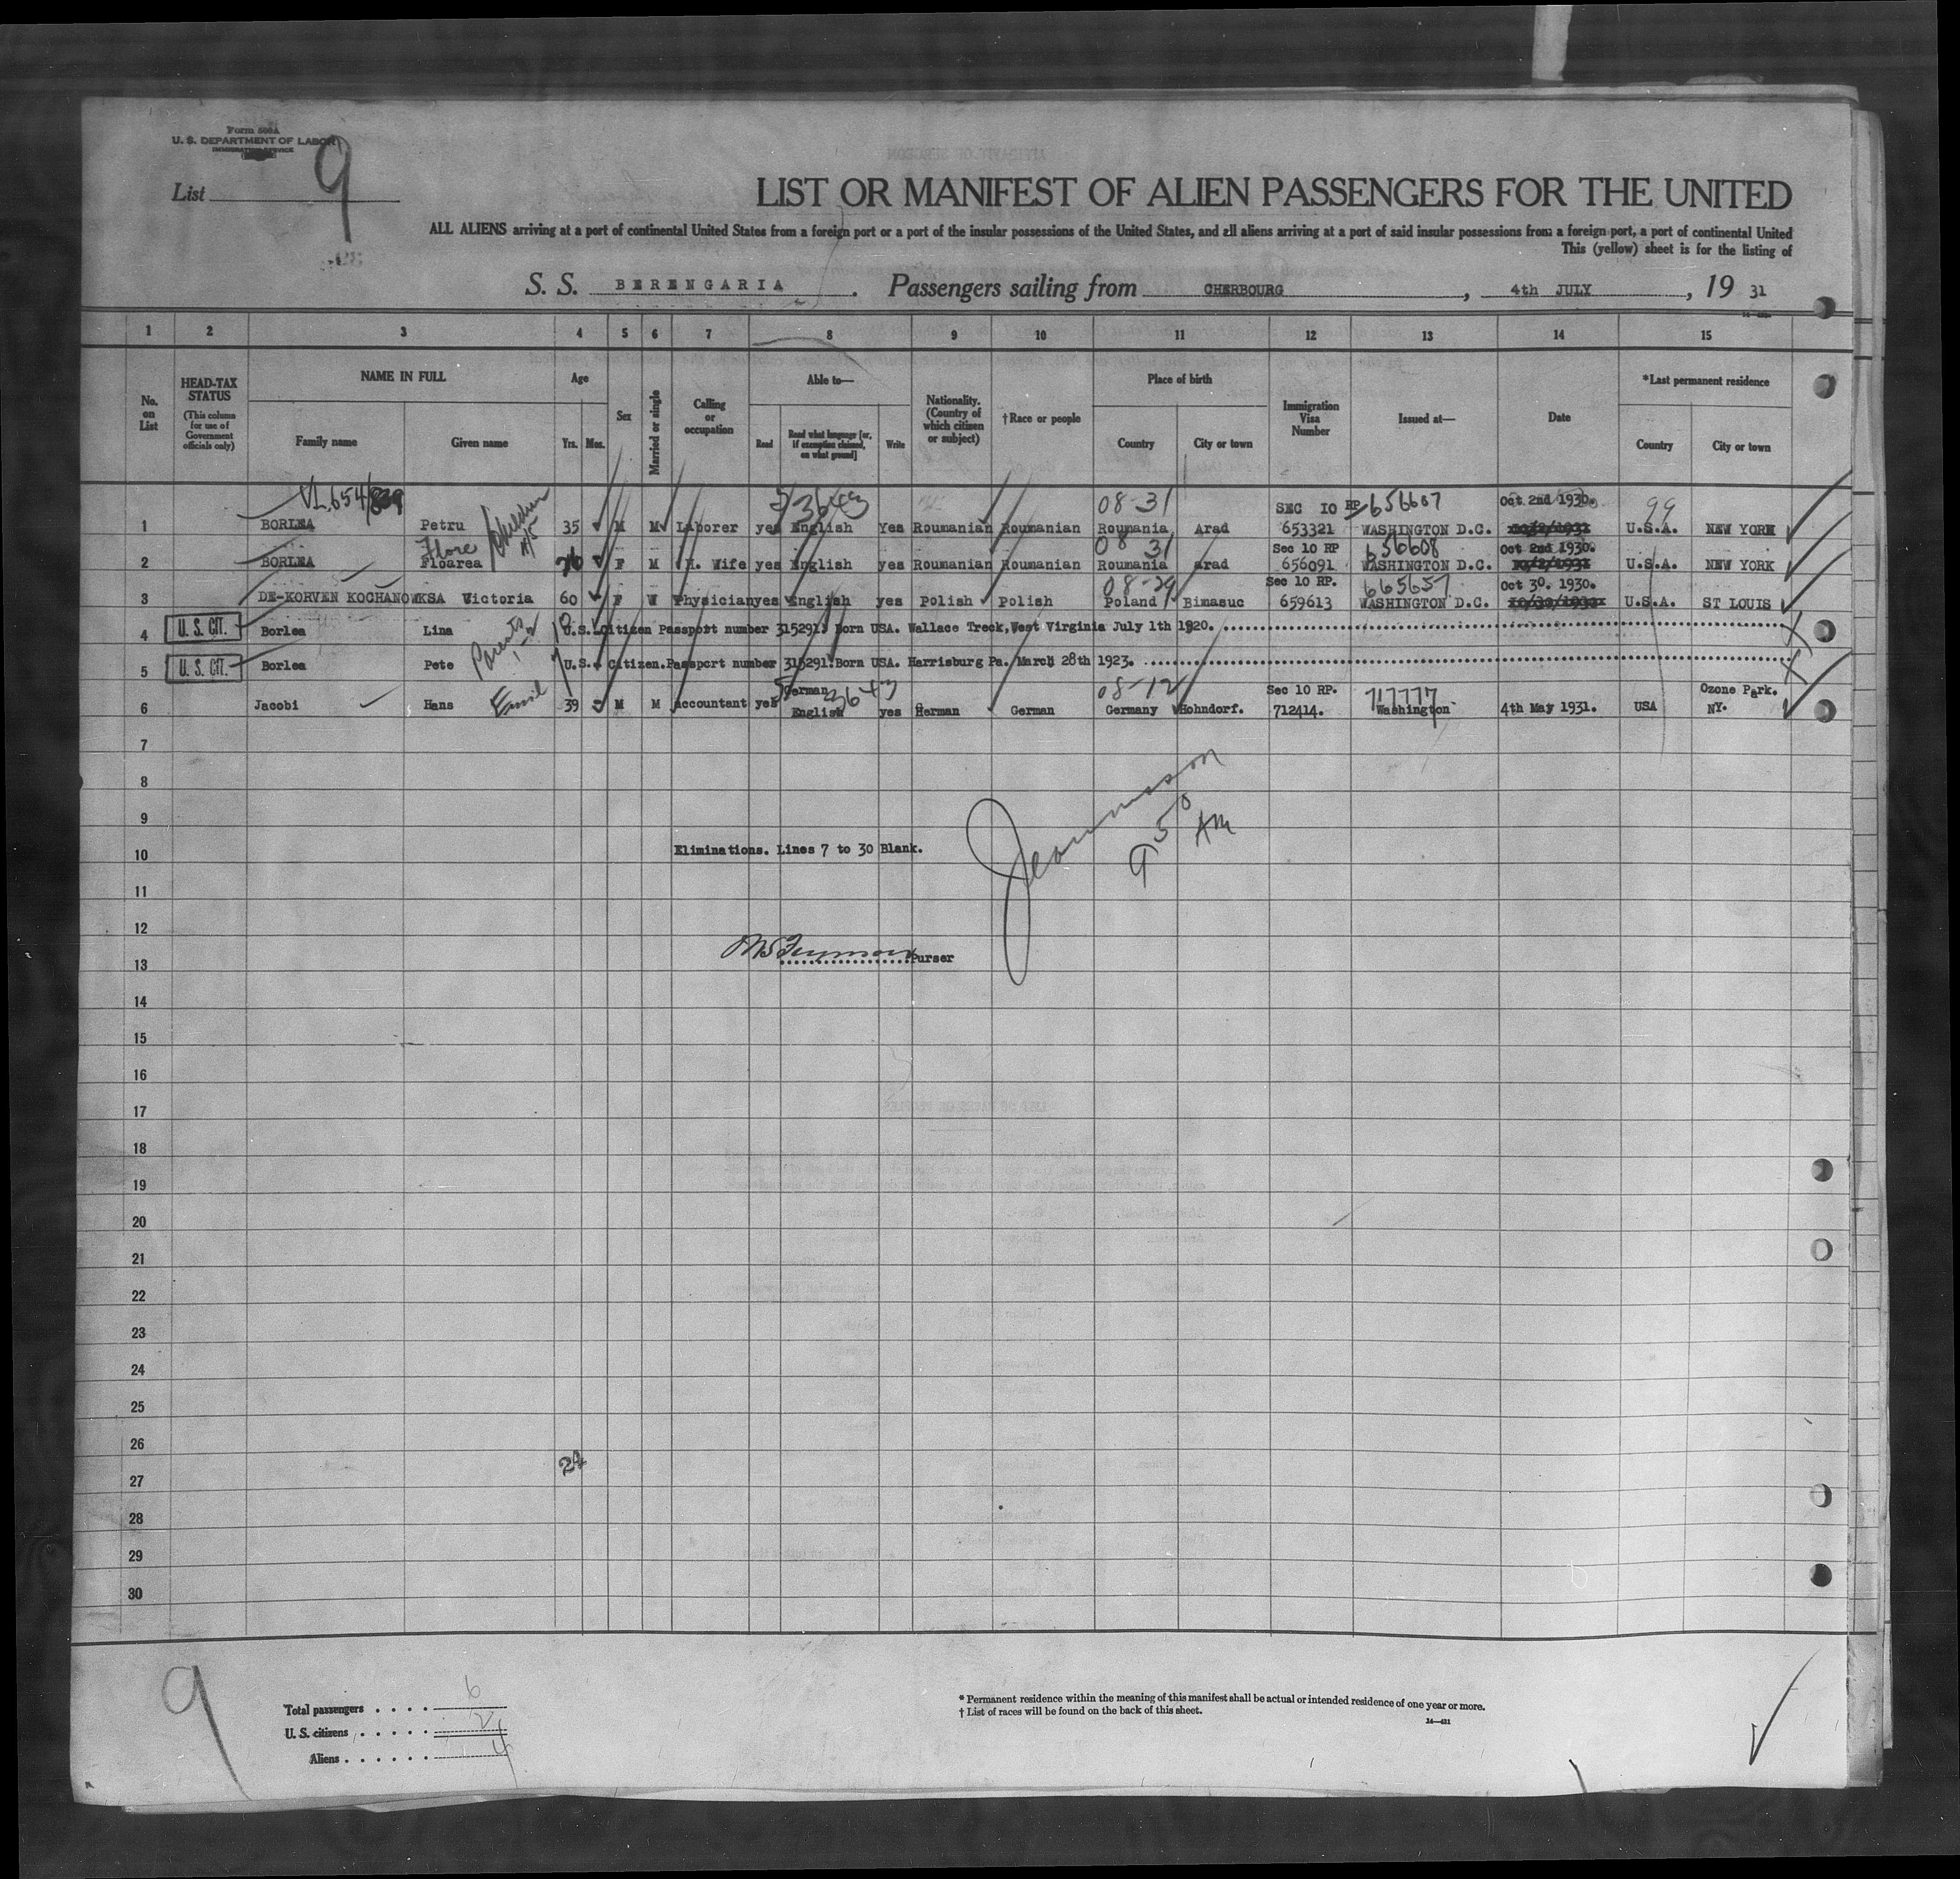 Form 500A
U. S. DEPARTMENT OF LABOR
IMMIGRATION SERVICE
List 9
LIST OR MANIFEST OF ALIEN PASSENGERS FOR THE UNITED
ALL ALIENS arriving at a port of continental United States from a foreign port or a port of the insular possessions of the United States, and all aliens arriving at a port of said insular possessions from a foreign port, a port of continental United
This (yellow) sheet is for the listing of
S. S. BERENGARIA . Passengers sailing from CHERBOURG , 4th JULY , 19 31
1 2 3 4 5 6 7 8 9 10 11 12 13 14 15
No. on List
HEAD-TAX STATUS (This column for use of Government officials only)
NAME IN FULL Family name Given name
Age Yrs. Mos.
Sex
Married or single
Calling or occupation
Able to— Read Read what language [or, if exemption claimed, on what ground] Write
Nationality. (Country of which citizen or subject)
†Race or people
Place of birth Country City or town
Immigration Visa Number
Issued at—
Date
*Last permanent residence Country City or town
VL 654/ 5/3643 08-31 SEC IO RP 656607 Oct 2nd 1930. 99
1 BORLEA Petru Children 4/5 35 M M Laborer yes English Yes Roumanian Roumanian Roumania Arad 653321 WASHINGTON D.C. U.S.A. NEW YORK
Flore 08 31 Sec 10 RP 656608 Oct 2nd 1930.
2 BORLEA Floarea F M H. Wife yes English yes Roumanian Roumanian Roumania Arad 656091 WASHINGTON D.C. U.S.A. NEW YORK
08-29 Sec 10 RP. 665657 Oct 30. 1930.
3 DE-KORVEN KOCHANOWKSA Victoria 60 F W Physician yes English yes Polish Polish Poland Bimasuc 659613 WASHINGTON D.C. 10/30/1930 U.S.A. ST LOUIS
4 U. S. CIT. Borlea Lina Parents 1-2 10 U.S. Citizen Passport number 315291. Born USA. Wallace Treck, West Virginia July 1th 1920.
5 U. S. CIT. Borlea Pete 7 U.S. Citizen. Passport number 315291. Born USA. Harrisburg Pa. March 28th 1923.
German 3643 08-12 Sec 10 RP. 717777 Ozone Park.
6 Jacobi Hans Emil 39 M M Accountant yes English yes German German Germany Hohndorf. 712414. Washington 4th May 1931. USA NY.
7
8
9
10 Eliminations. Lines 7 to 30 Blank.
9 50 AM
11
12
13 Purser
14
15
16
17
18
19
20
21
22
23
24
25
26
24
27
28
29
30
9
Total passengers . . . . 6
U. S. citizens . . . . . 2
Aliens . . . . . . 4
* Permanent residence within the meaning of this manifest shall be actual or intended residence of one year or more.
† List of races will be found on the back of this sheet.
14—421